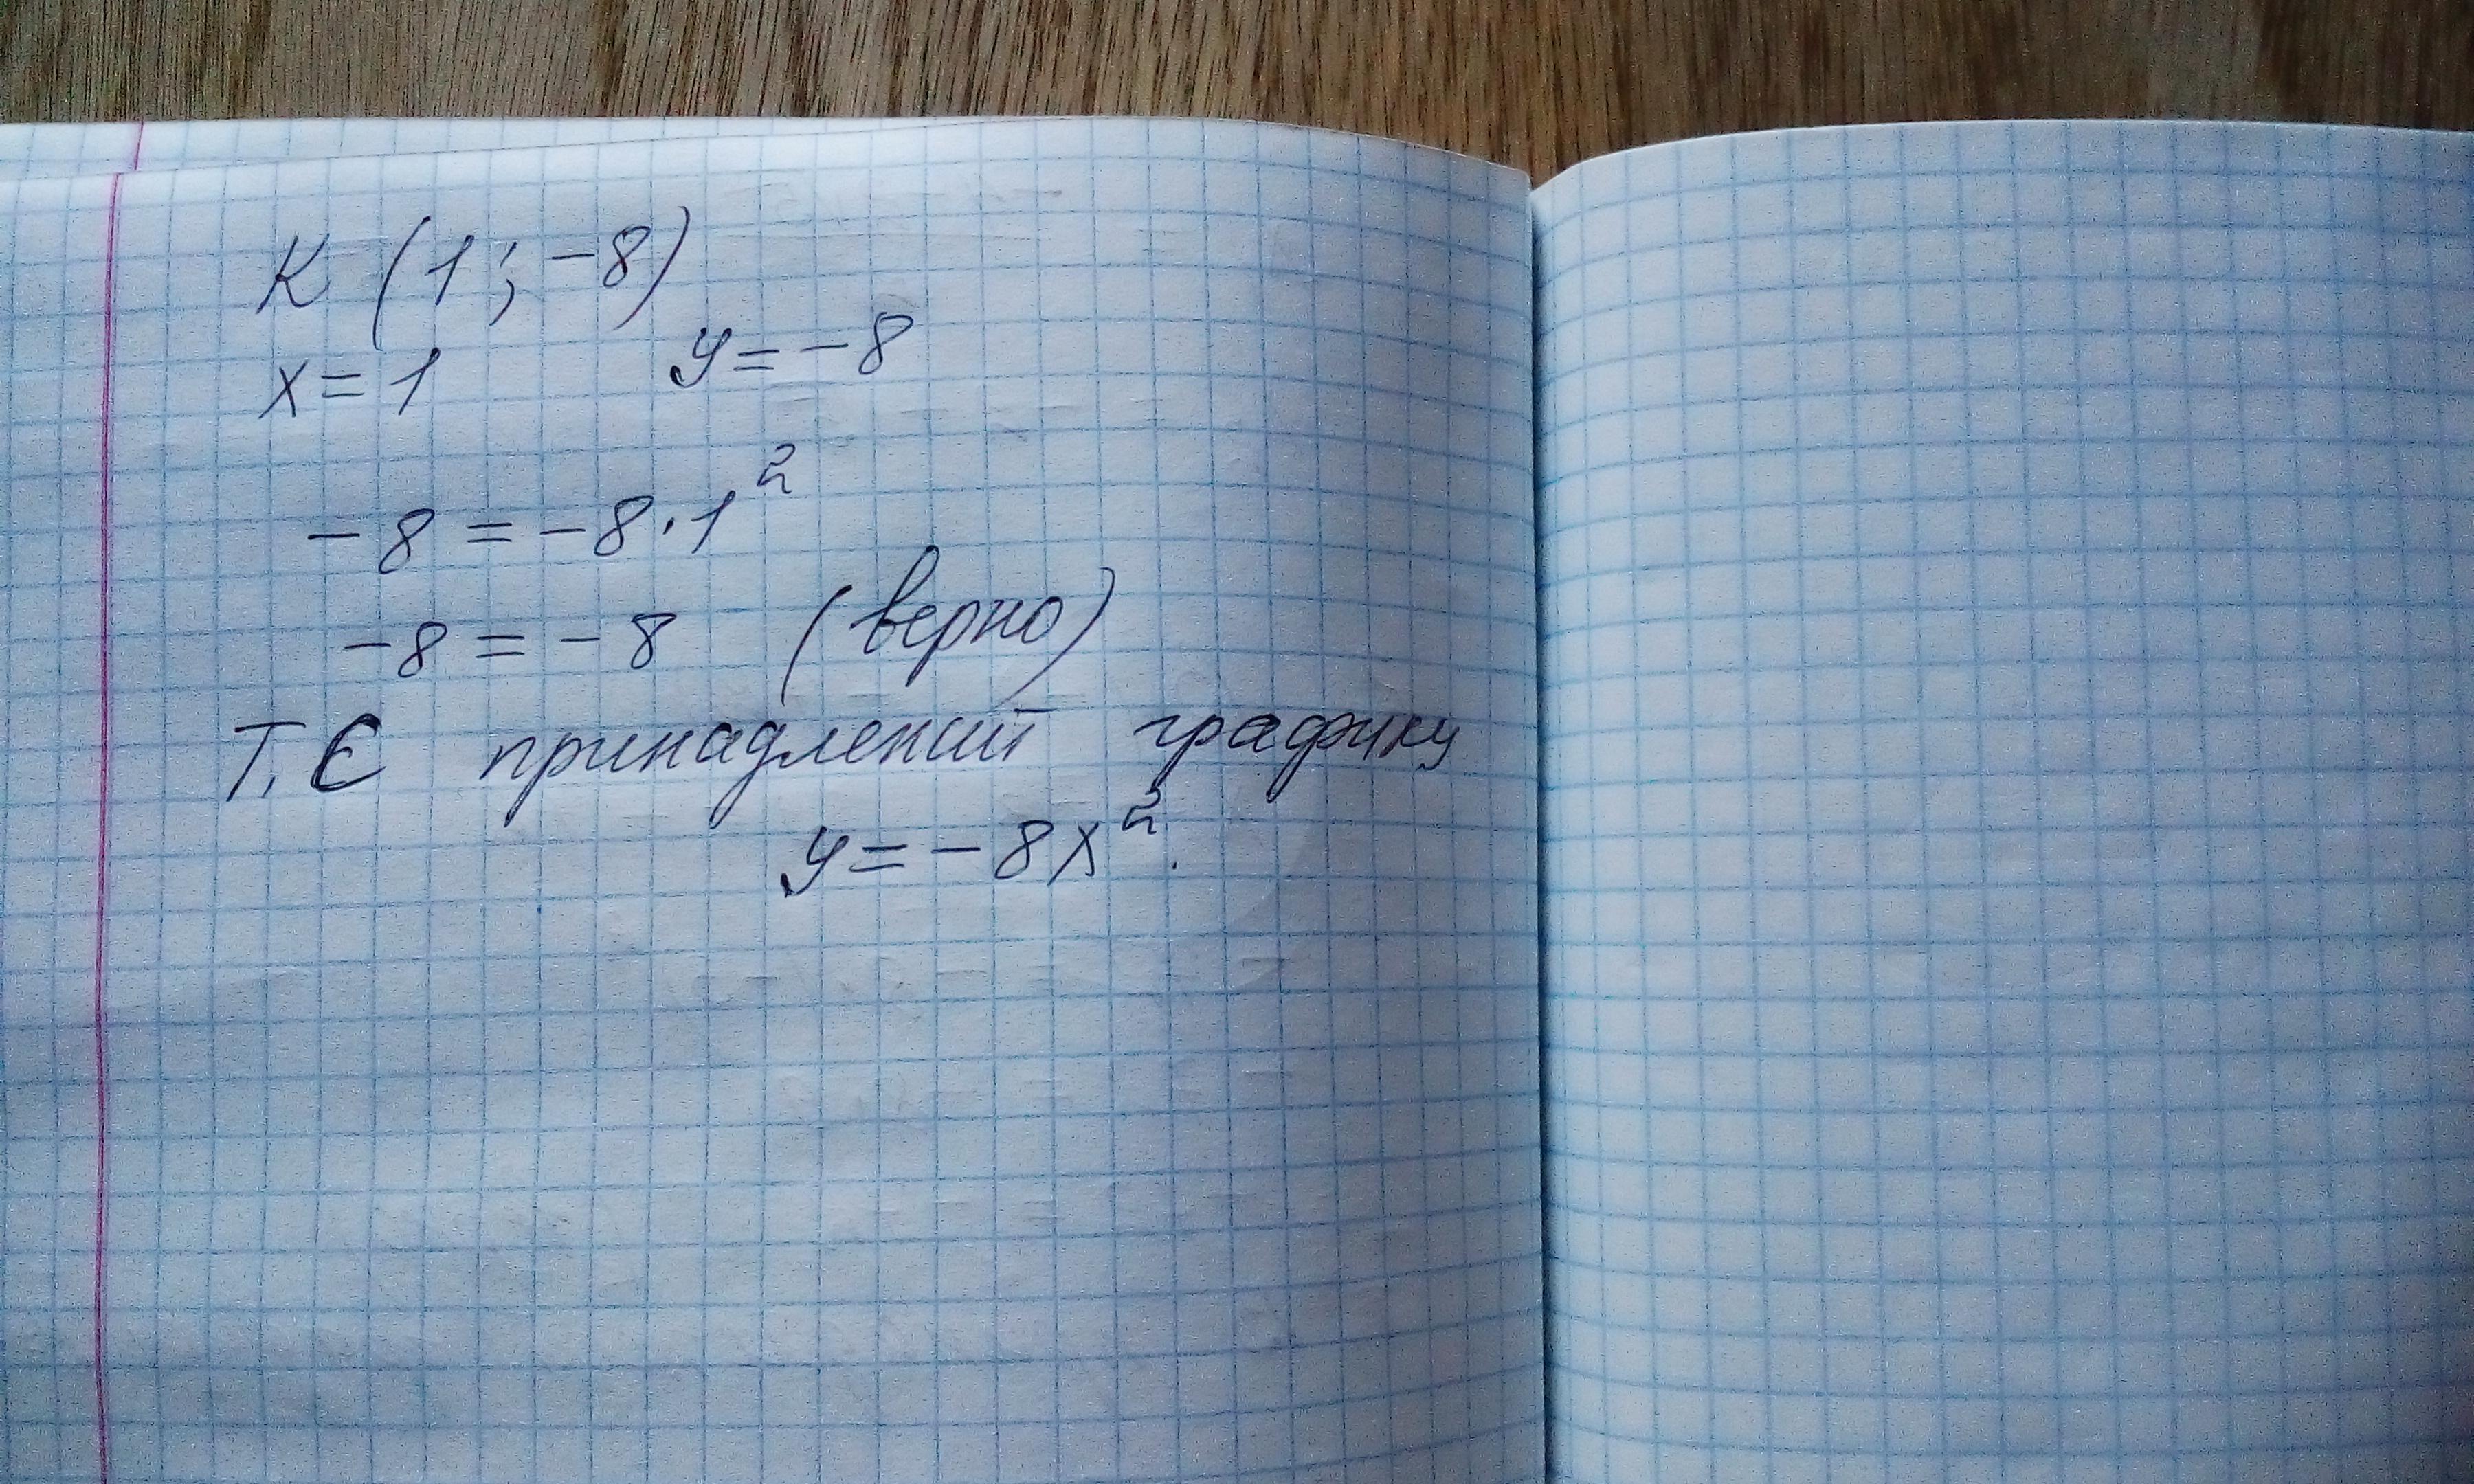 К (1; -8)
x = 1 y = -8
-8 = -8·1²
-8 = -8 (верно)
Т. С принадлежит графику
y = -8x².